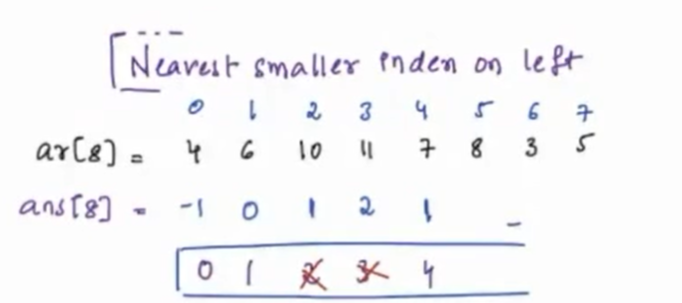 Nearest smaller inden on left
0 1 2 3 4 5 6 7
ar[8] = 4 6 10 11 7 8 3 5
ans[8] = -1 0 1 2 1 _
0 1 2 3 4